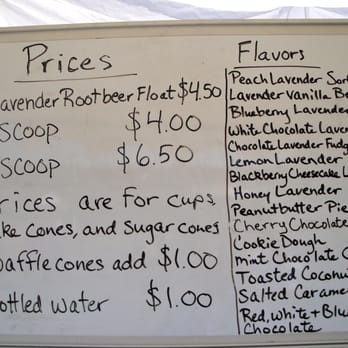 Prices
avender Rootbeer Float $4.50
SCOOP $4.00
SCOOP $6.50
rices are for cups,
ke cones, and sugar cones
affle cones add $1.00
ottled Water $1.00
Flavors
Peach Lavender Sor
Lavender Vanilla Be
Blueberry Lavender
White Chocolate Lave
Chocolate Lavender Fudg
Lemon Lavender
Blackberry Cheesecake L
Honey Lavender
Peanutbutter Pie
Cherry Chocolate
Cookie Dough
mint Chocolate C
Toasted Coconu
Salted Carame
Red, White + Blu
Chocolate